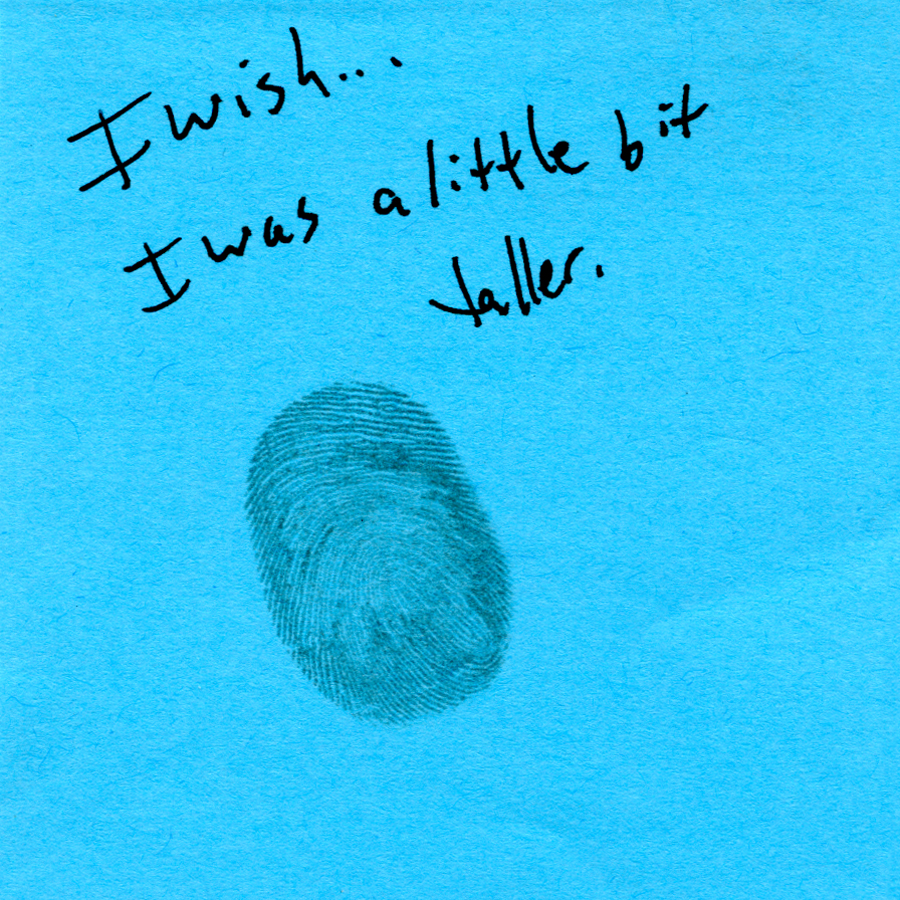 I wish...
I was a little bit
taller.